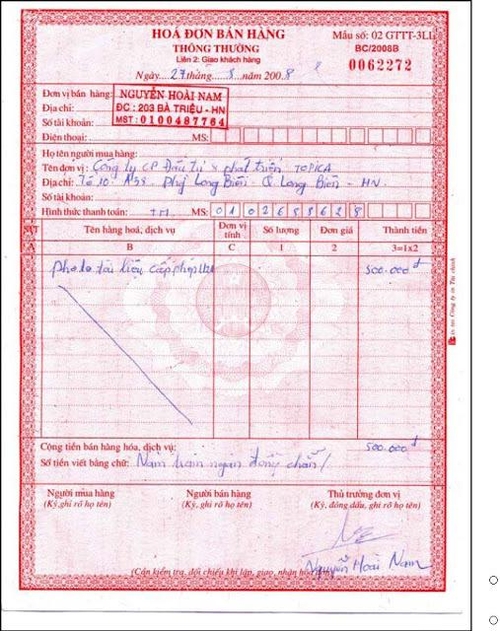 HOÁ ĐƠN BÁN HÀNG
THÔNG THƯỜNG
Liên 2: Giao khách hàng
Mẫu số: 02 GTTT-3LL
BC/2008B
0062272
Ngày....27 tháng....8....năm 2008
Đơn vị bán hàng:
NGUYỄN HOÀI NAM
Địa chỉ:
ĐC : 203 BÀ TRIỆU - HN
Số tài khoản:
MST : 0100487764
Điện thoại: MS:
Họ tên người mua hàng:
Tên đơn vị: Công ty CP Đầu tư & phát triển TOPICA
Địa chỉ: Tổ 10 Long Biên - Q Long Biên - HN
Số tài khoản:
Hình thức thanh toán: TM MS: 01 0
STT Tên hàng hoá, dịch vụ Đơn vị tính Số lượng Đơn giá Thành tiền
A B C 1 2 3=1x2
photo tài liệu cấp phép 500.000đ
Cộng tiền bán hàng hóa, dịch vụ: 500.000đ
Số tiền viết bằng chữ: Năm trăm ngàn đồng chẵn/
Người mua hàng Người bán hàng Thủ trưởng đơn vị
(Ký, ghi rõ họ tên) (Ký, ghi rõ họ tên) (Ký, đóng dấu, ghi rõ họ tên)
Nguyễn Hoài Nam
(Cần kiểm tra, đối chiếu khi lập, giao, nhận